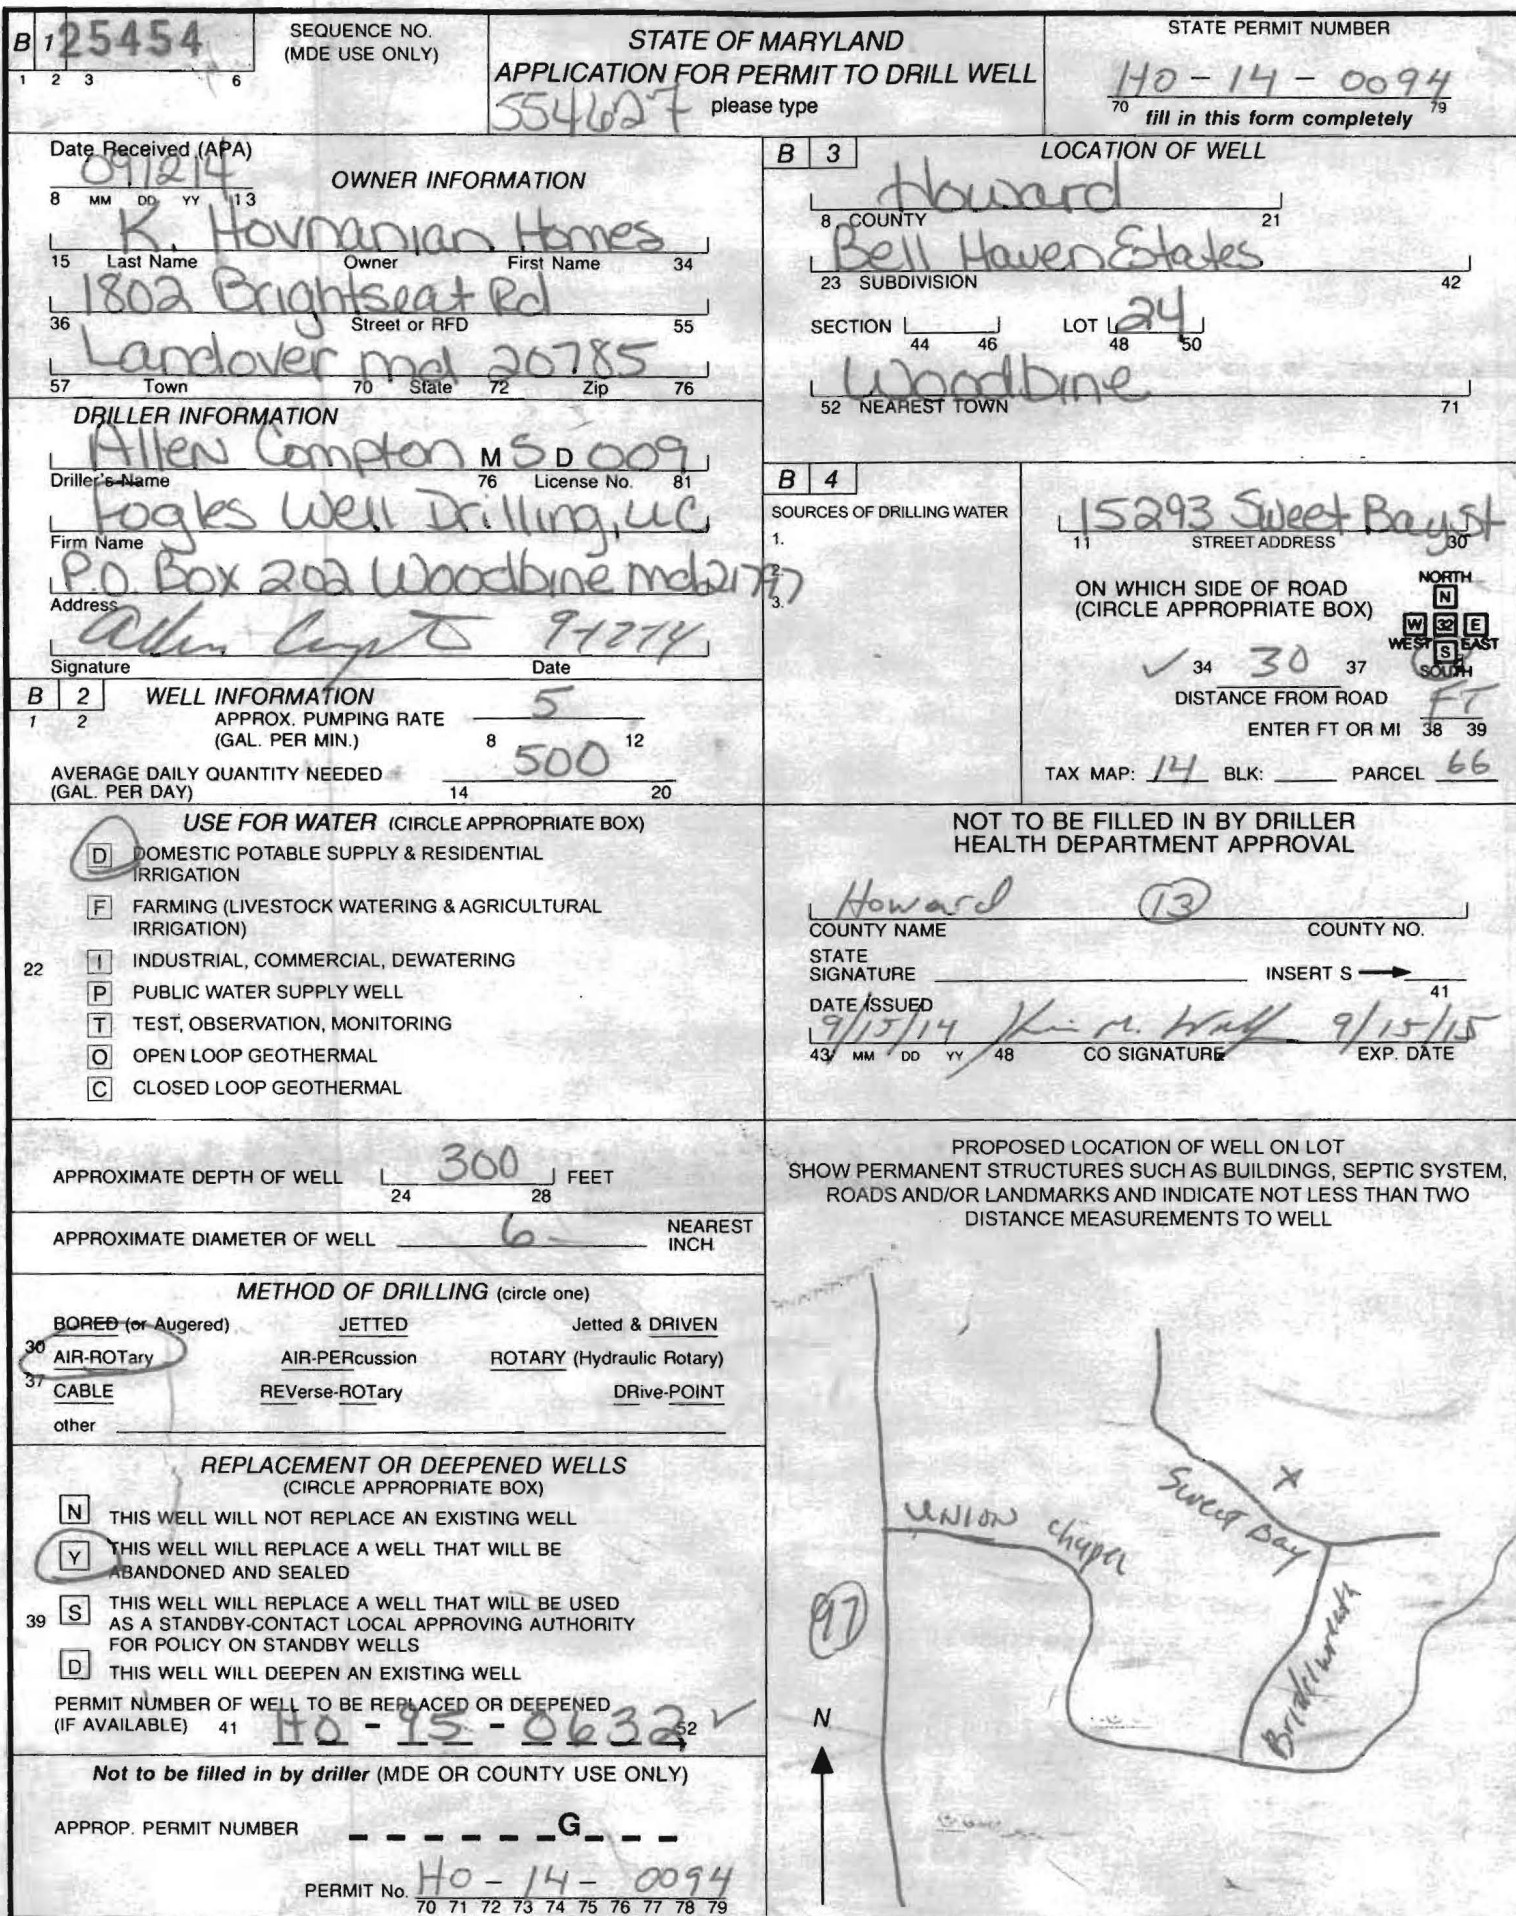 B 1 25454
1 2 3 6
SEQUENCE NO.
(MDE USE ONLY)
STATE OF MARYLAND
APPLICATION FOR PERMIT TO DRILL WELL
554627 please type
STATE PERMIT NUMBER
HO - 14 - 0094
70 79
fill in this form completely
Date Received (APA)
091214
8 MM DD YY 13
OWNER INFORMATION
K. Hovnanian Homes
15 Last Name Owner First Name 34
1802 Brightseat Rd
36 Street or RFD 55
Landover md 20785
57 Town 70 State 72 Zip 76
DRILLER INFORMATION
Allen Compton M S D 009
Driller's Name 76 License No. 81
Fogles Well Drilling, LLC
Firm Name
P.O. Box 202 Woodbine md 21797
Address
Allen Compton 9-12-14
Signature Date
B 2 WELL INFORMATION
1 2
APPROX. PUMPING RATE 5
(GAL. PER MIN.) 8 12
AVERAGE DAILY QUANTITY NEEDED 500
(GAL. PER DAY) 14 20
USE FOR WATER (CIRCLE APPROPRIATE BOX)
D DOMESTIC POTABLE SUPPLY & RESIDENTIAL
IRRIGATION
F FARMING (LIVESTOCK WATERING & AGRICULTURAL
IRRIGATION)
22 I INDUSTRIAL, COMMERCIAL, DEWATERING
P PUBLIC WATER SUPPLY WELL
T TEST, OBSERVATION, MONITORING
O OPEN LOOP GEOTHERMAL
C CLOSED LOOP GEOTHERMAL
APPROXIMATE DEPTH OF WELL 300 FEET
24 28
APPROXIMATE DIAMETER OF WELL 6 NEAREST
INCH
METHOD OF DRILLING (circle one)
BORED (or Augered) JETTED Jetted & DRIVEN
30 AIR-ROTary AIR-PERcussion ROTARY (Hydraulic Rotary)
37 CABLE REVerse-ROTary DRive-POINT
other
REPLACEMENT OR DEEPENED WELLS
(CIRCLE APPROPRIATE BOX)
N THIS WELL WILL NOT REPLACE AN EXISTING WELL
Y THIS WELL WILL REPLACE A WELL THAT WILL BE
ABANDONED AND SEALED
39 S THIS WELL WILL REPLACE A WELL THAT WILL BE USED
AS A STANDBY-CONTACT LOCAL APPROVING AUTHORITY
FOR POLICY ON STANDBY WELLS
D THIS WELL WILL DEEPEN AN EXISTING WELL
PERMIT NUMBER OF WELL TO BE REPLACED OR DEEPENED
(IF AVAILABLE) 41 HO - 95 - 0632 52 ✓
Not to be filled in by driller (MDE OR COUNTY USE ONLY)
APPROP. PERMIT NUMBER _ _ _ _ _ _ G _ _ _
PERMIT No. HO - 14 - 0094
70 71 72 73 74 75 76 77 78 79
B 3 LOCATION OF WELL
Howard
8 COUNTY 21
Bell Haven Estates
23 SUBDIVISION 42
SECTION LOT 24
44 46 48 50
Woodbine
52 NEAREST TOWN 71
B 4
SOURCES OF DRILLING WATER
1.
2.
3.
15293 Sweet Bay St
11 STREET ADDRESS 30
ON WHICH SIDE OF ROAD
(CIRCLE APPROPRIATE BOX)
NORTH
N
W 32 E
WEST S EAST
SOUTH
✓ 34 30 37
DISTANCE FROM ROAD FT
ENTER FT OR MI 38 39
TAX MAP: 14 BLK: PARCEL 66
NOT TO BE FILLED IN BY DRILLER
HEALTH DEPARTMENT APPROVAL
Howard 13
COUNTY NAME COUNTY NO.
STATE
SIGNATURE INSERT S
41
DATE ISSUED
9/15/14 9/15/15
43 MM DD YY 48 CO SIGNATURE EXP. DATE
PROPOSED LOCATION OF WELL ON LOT
SHOW PERMANENT STRUCTURES SUCH AS BUILDINGS, SEPTIC SYSTEM,
ROADS AND/OR LANDMARKS AND INDICATE NOT LESS THAN TWO
DISTANCE MEASUREMENTS TO WELL
X
Sweet Bay
UNION Chapel
97
Bridlewreath
N